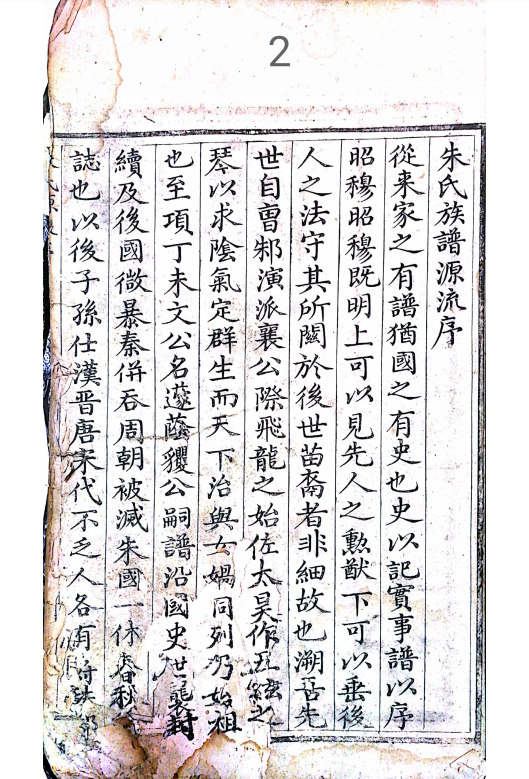 2
朱氏族譜源流序
從来家之有譜猶國之有史也史以記實事譜以序
昭穆昭穆既明上可以見先人之勲猷下可以垂後
人之法守其所關於後世苗裔者非細故也溯吾先
世自曹邾演派襄公際飛龍之始佐太昊作五絃之
琴以求陰氣定群生而天下治與女媧同列乃始祖
也至項丁未文公名蘧蔭貜公嗣譜沿國史世襲封
續及後國微暴秦併吞周朝被滅朱國一休春秋
誌也以後子孫仕漢晋唐宋代不乏人各有